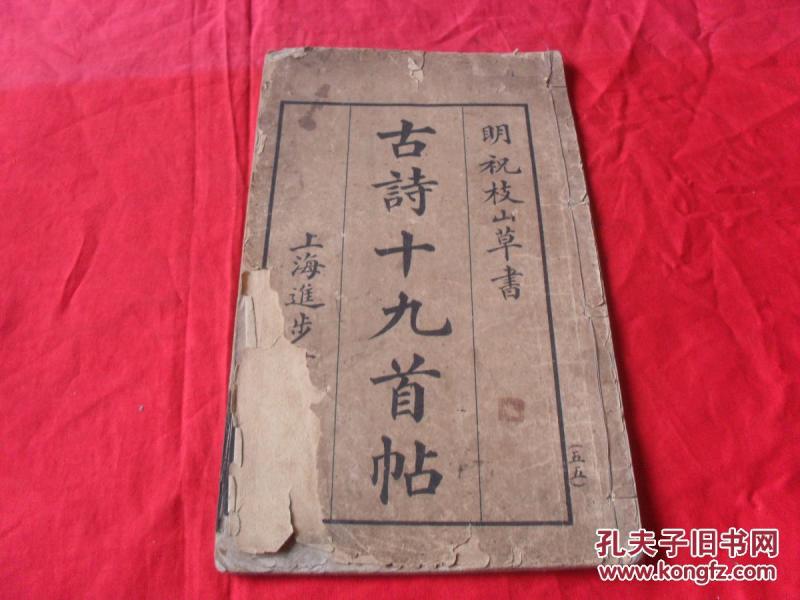 明祝枝山草書
古詩十九首帖
上海進步
（五五）
孔夫子旧书网
www.kongfz.com